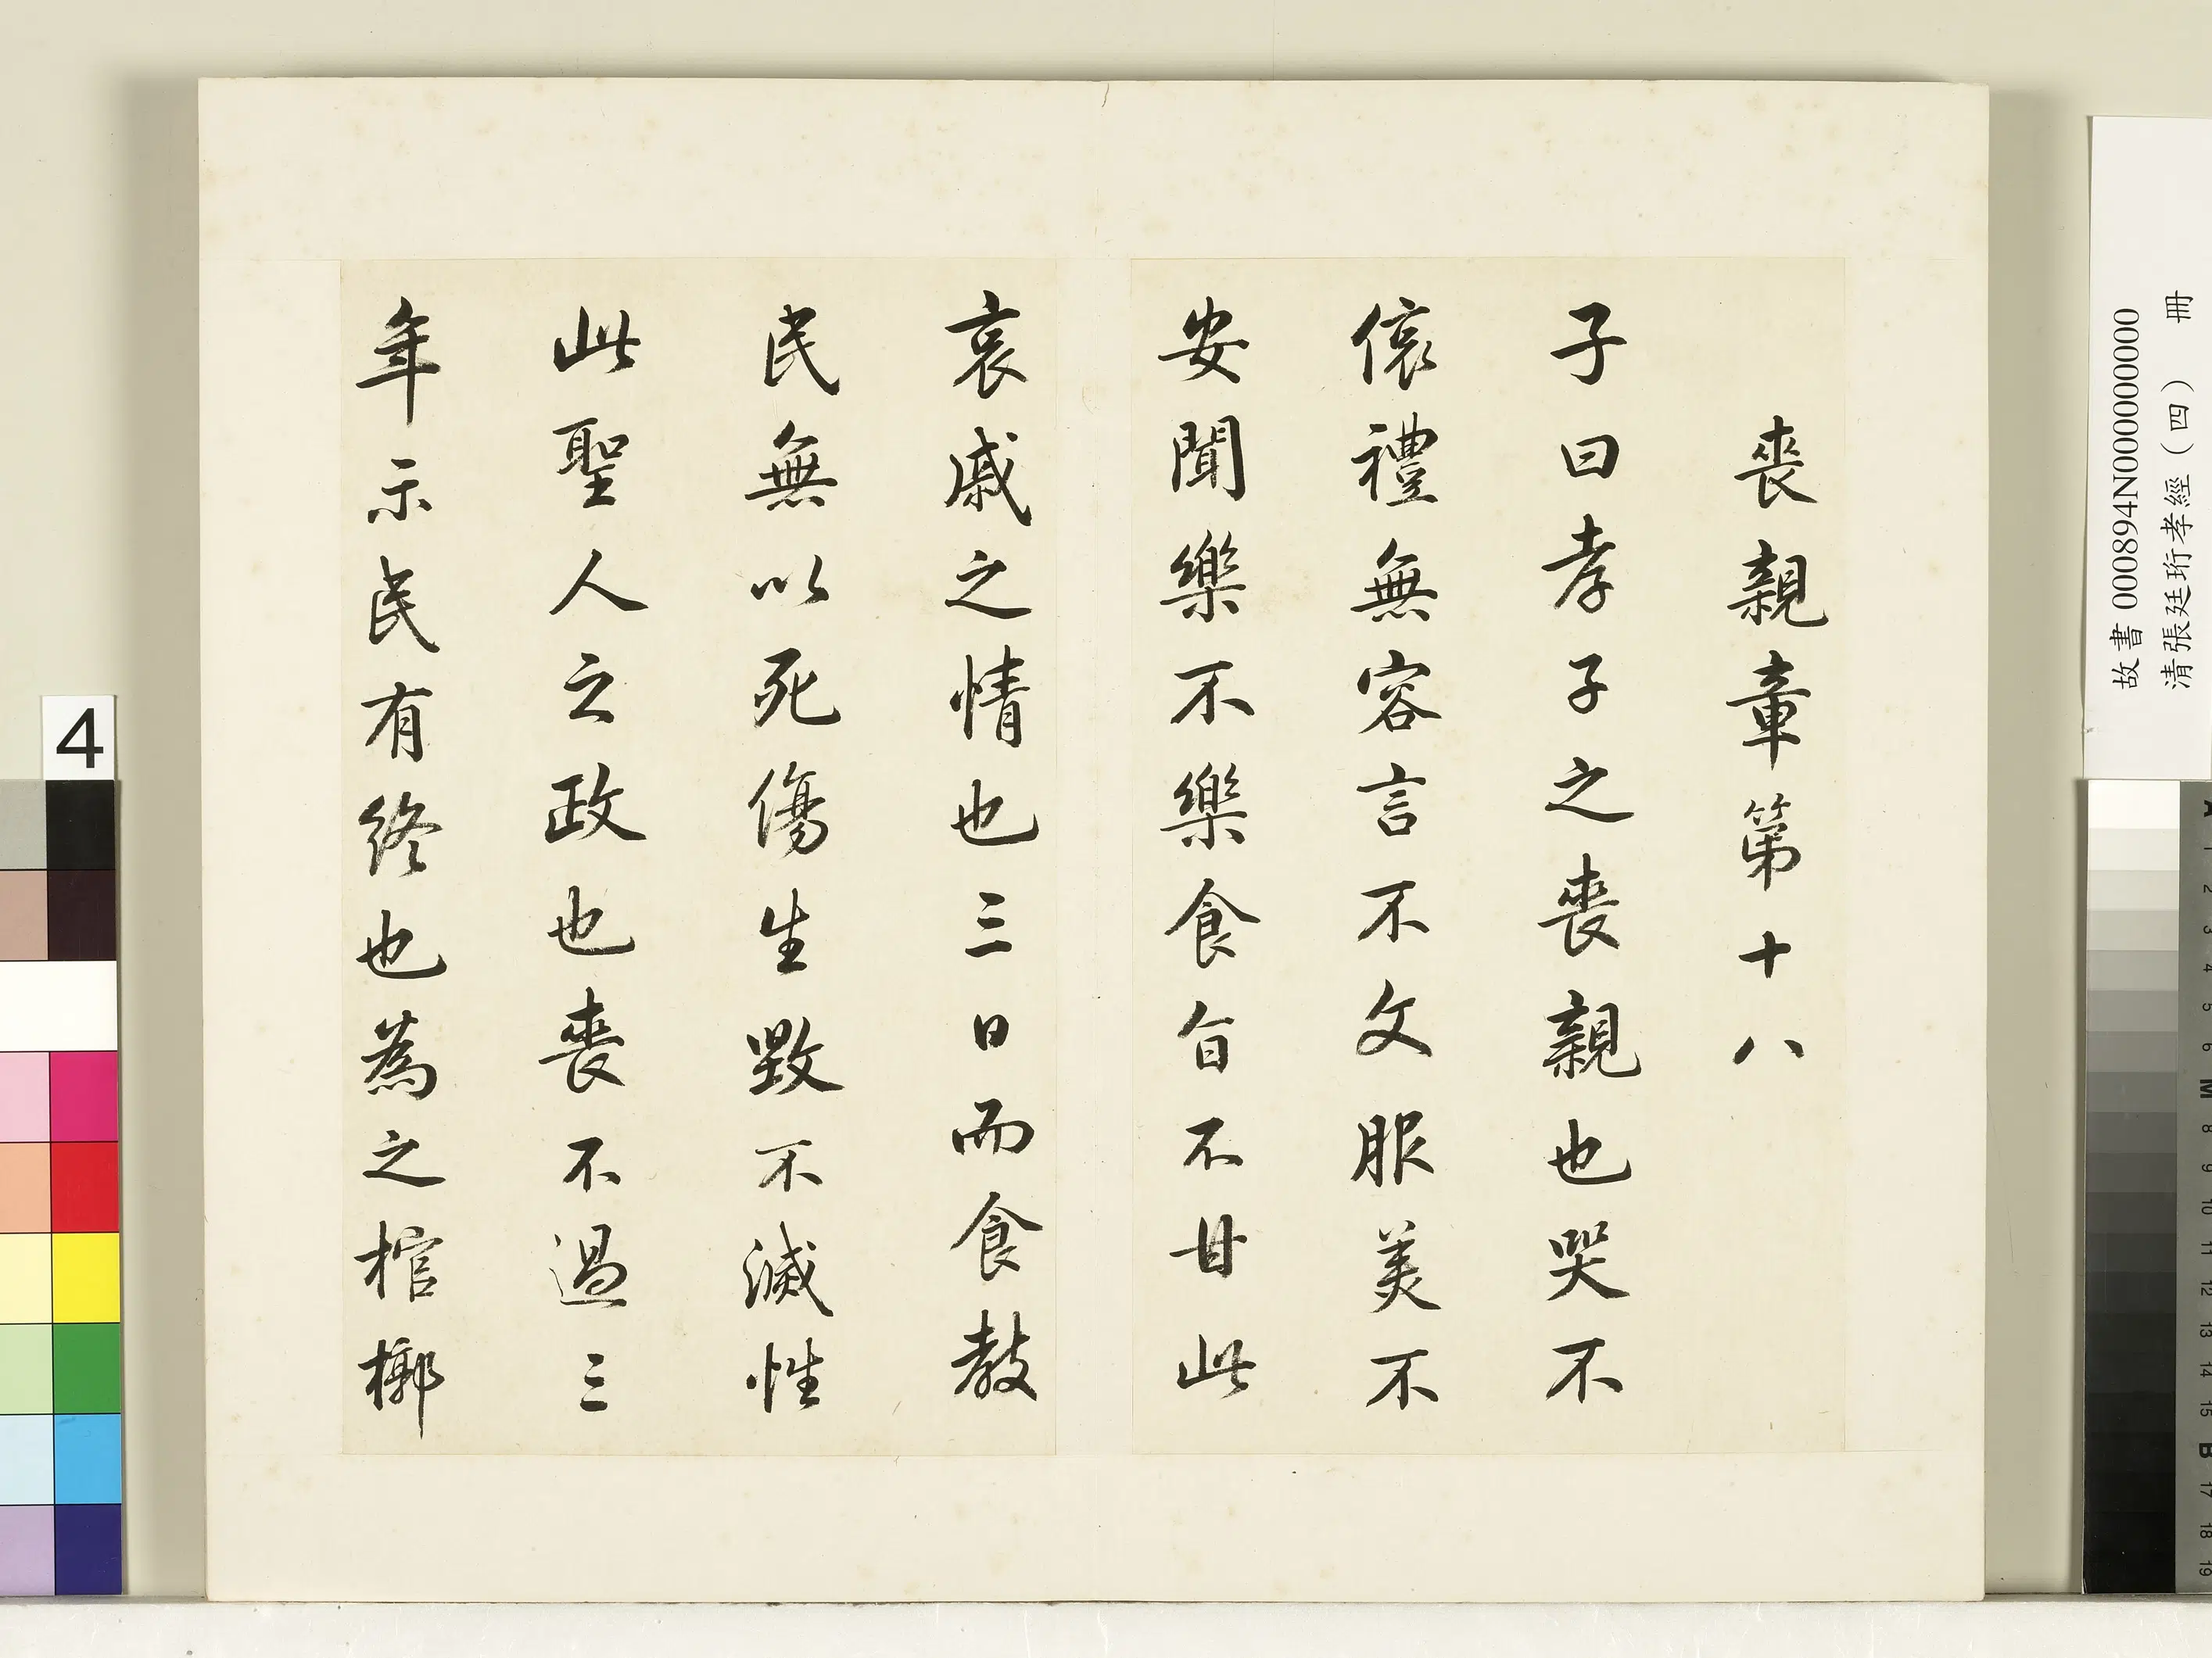 喪親章第十八
子曰孝子之喪親也哭不
偯禮無容言不文服美不
安聞樂不樂食旨不甘此
哀戚之情也三日而食教
民無以死傷生毀不滅性
此聖人之政也喪不過三
年示民有終也為之棺槨
故書 000894N000000000
清張廷珩孝經（四） 冊
4
A
1
2
3
4
5
6
M
8
9
10
11
12
13
14
15
B
17
18
19